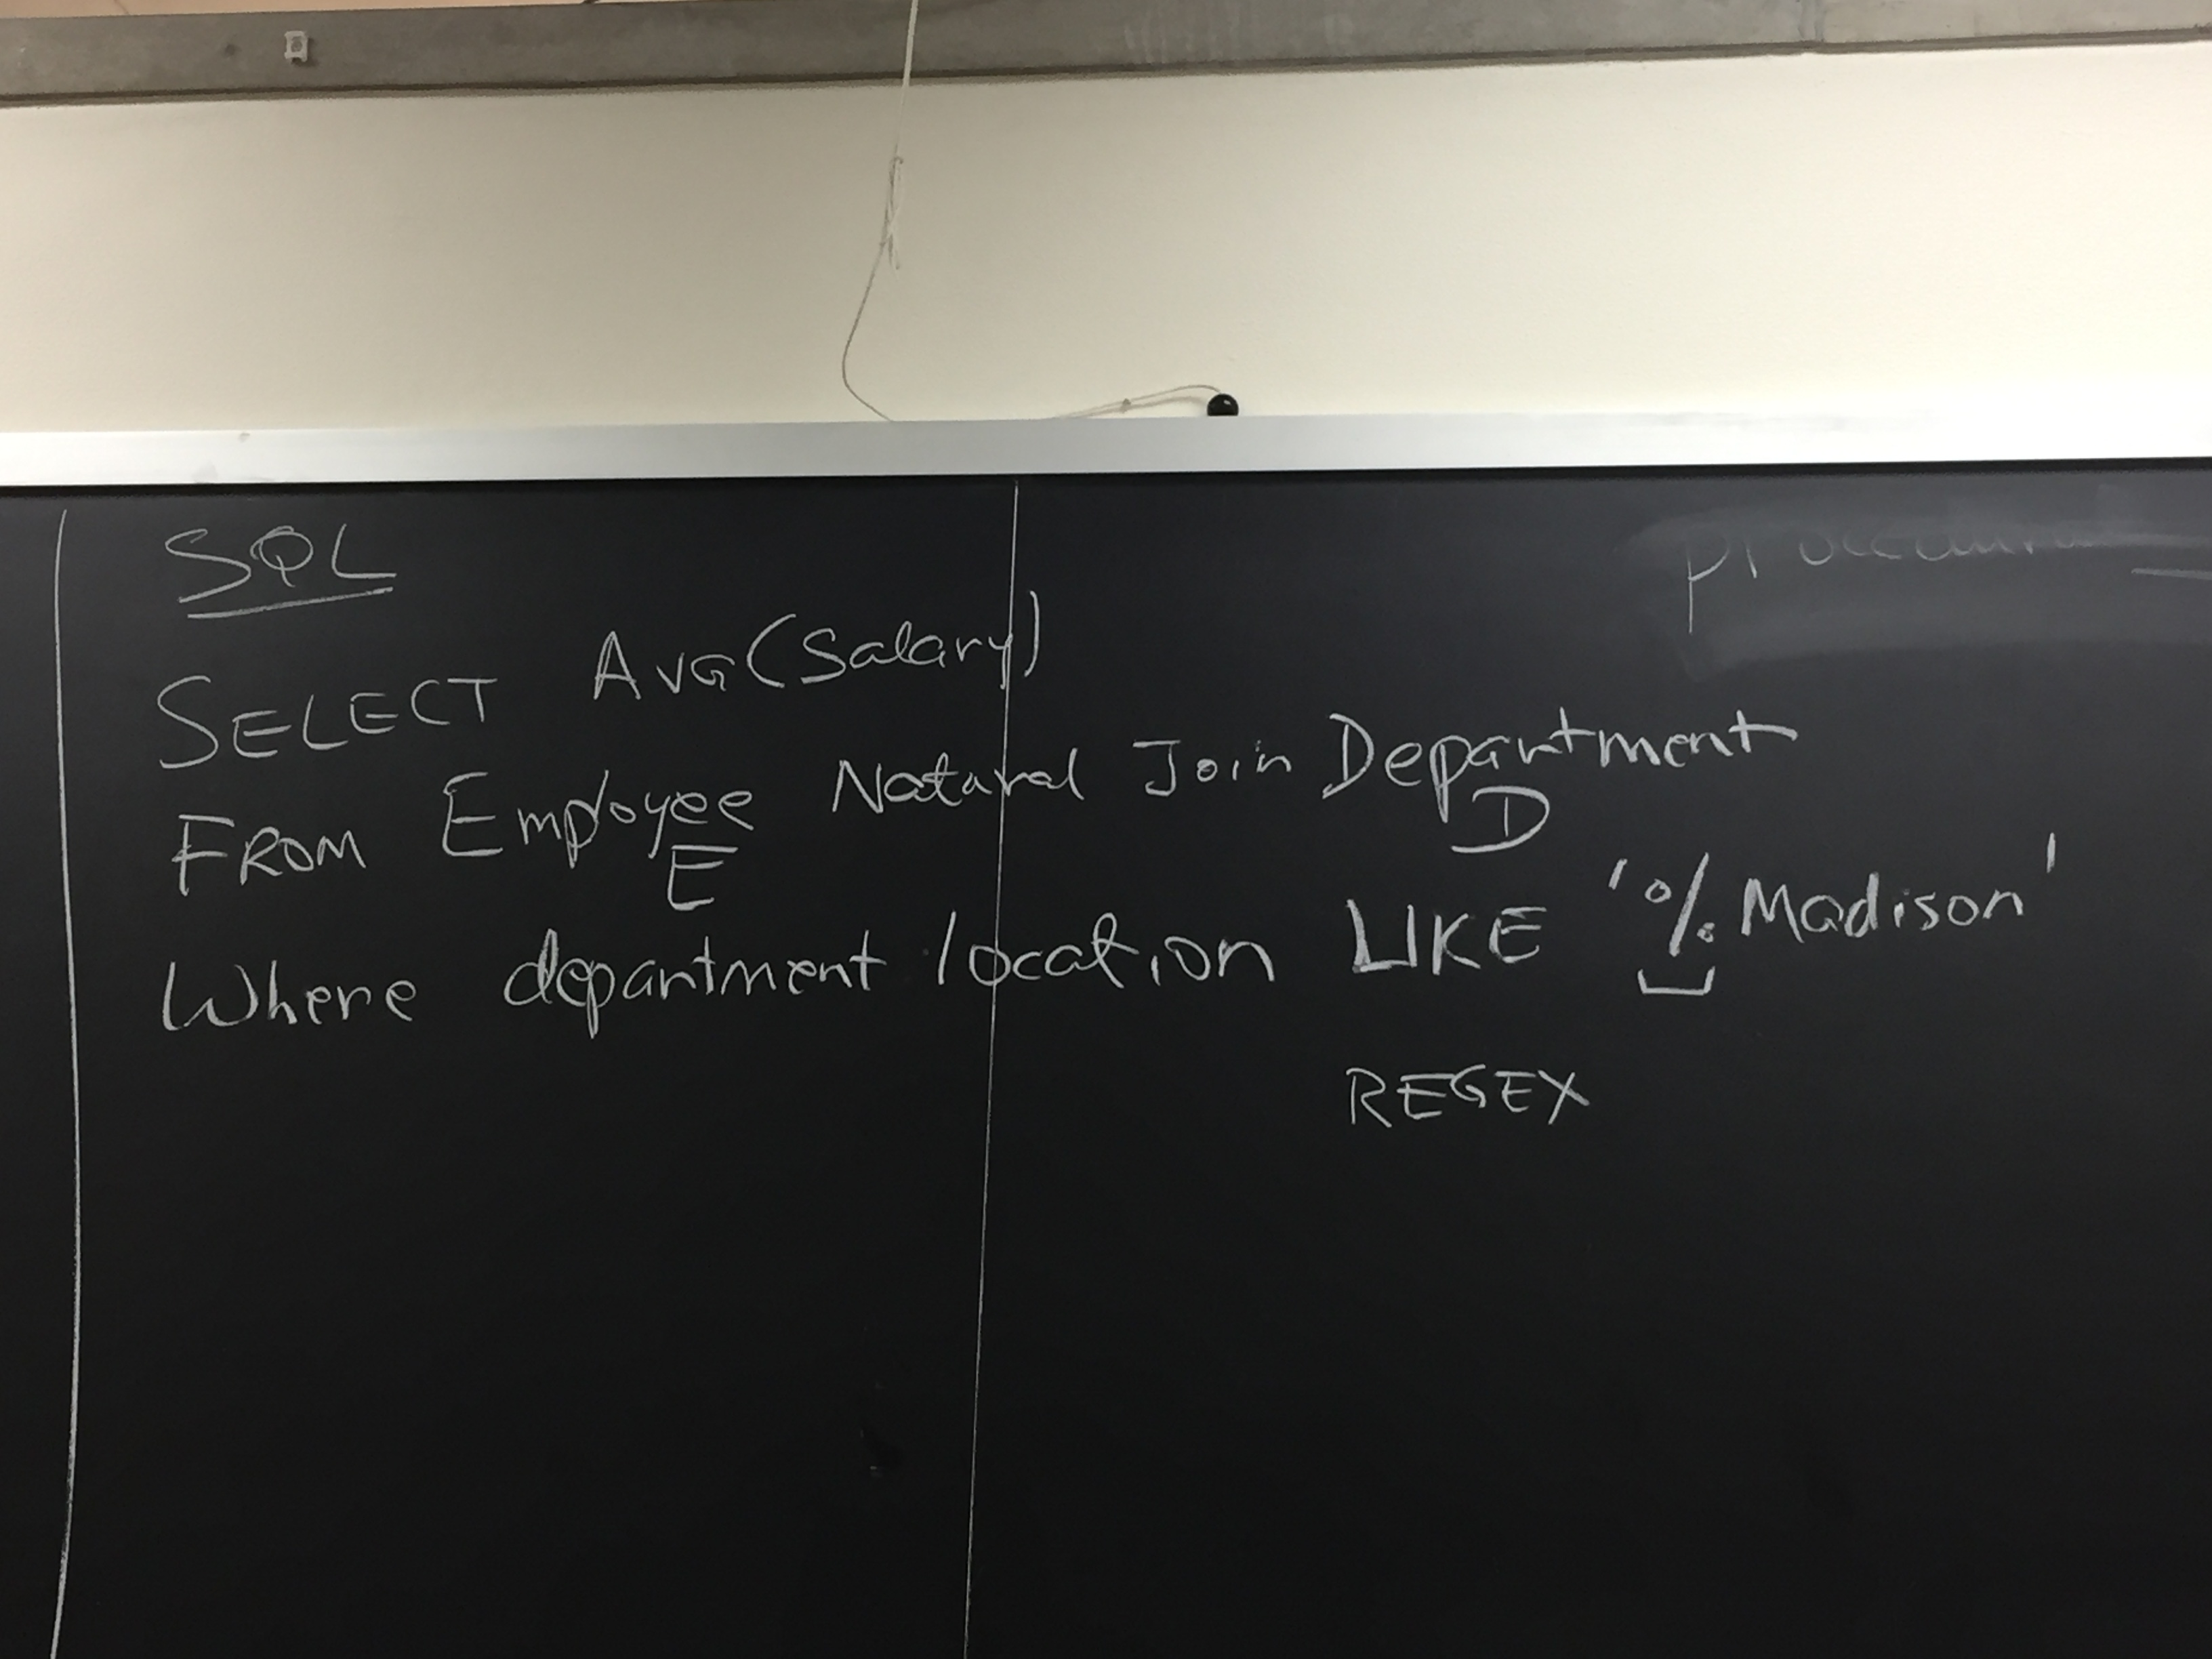 SQL
SELECT AVG(Salary)
FROM Employee Natural Join Department
E D
Where department location LIKE '%Madison'
REGEX